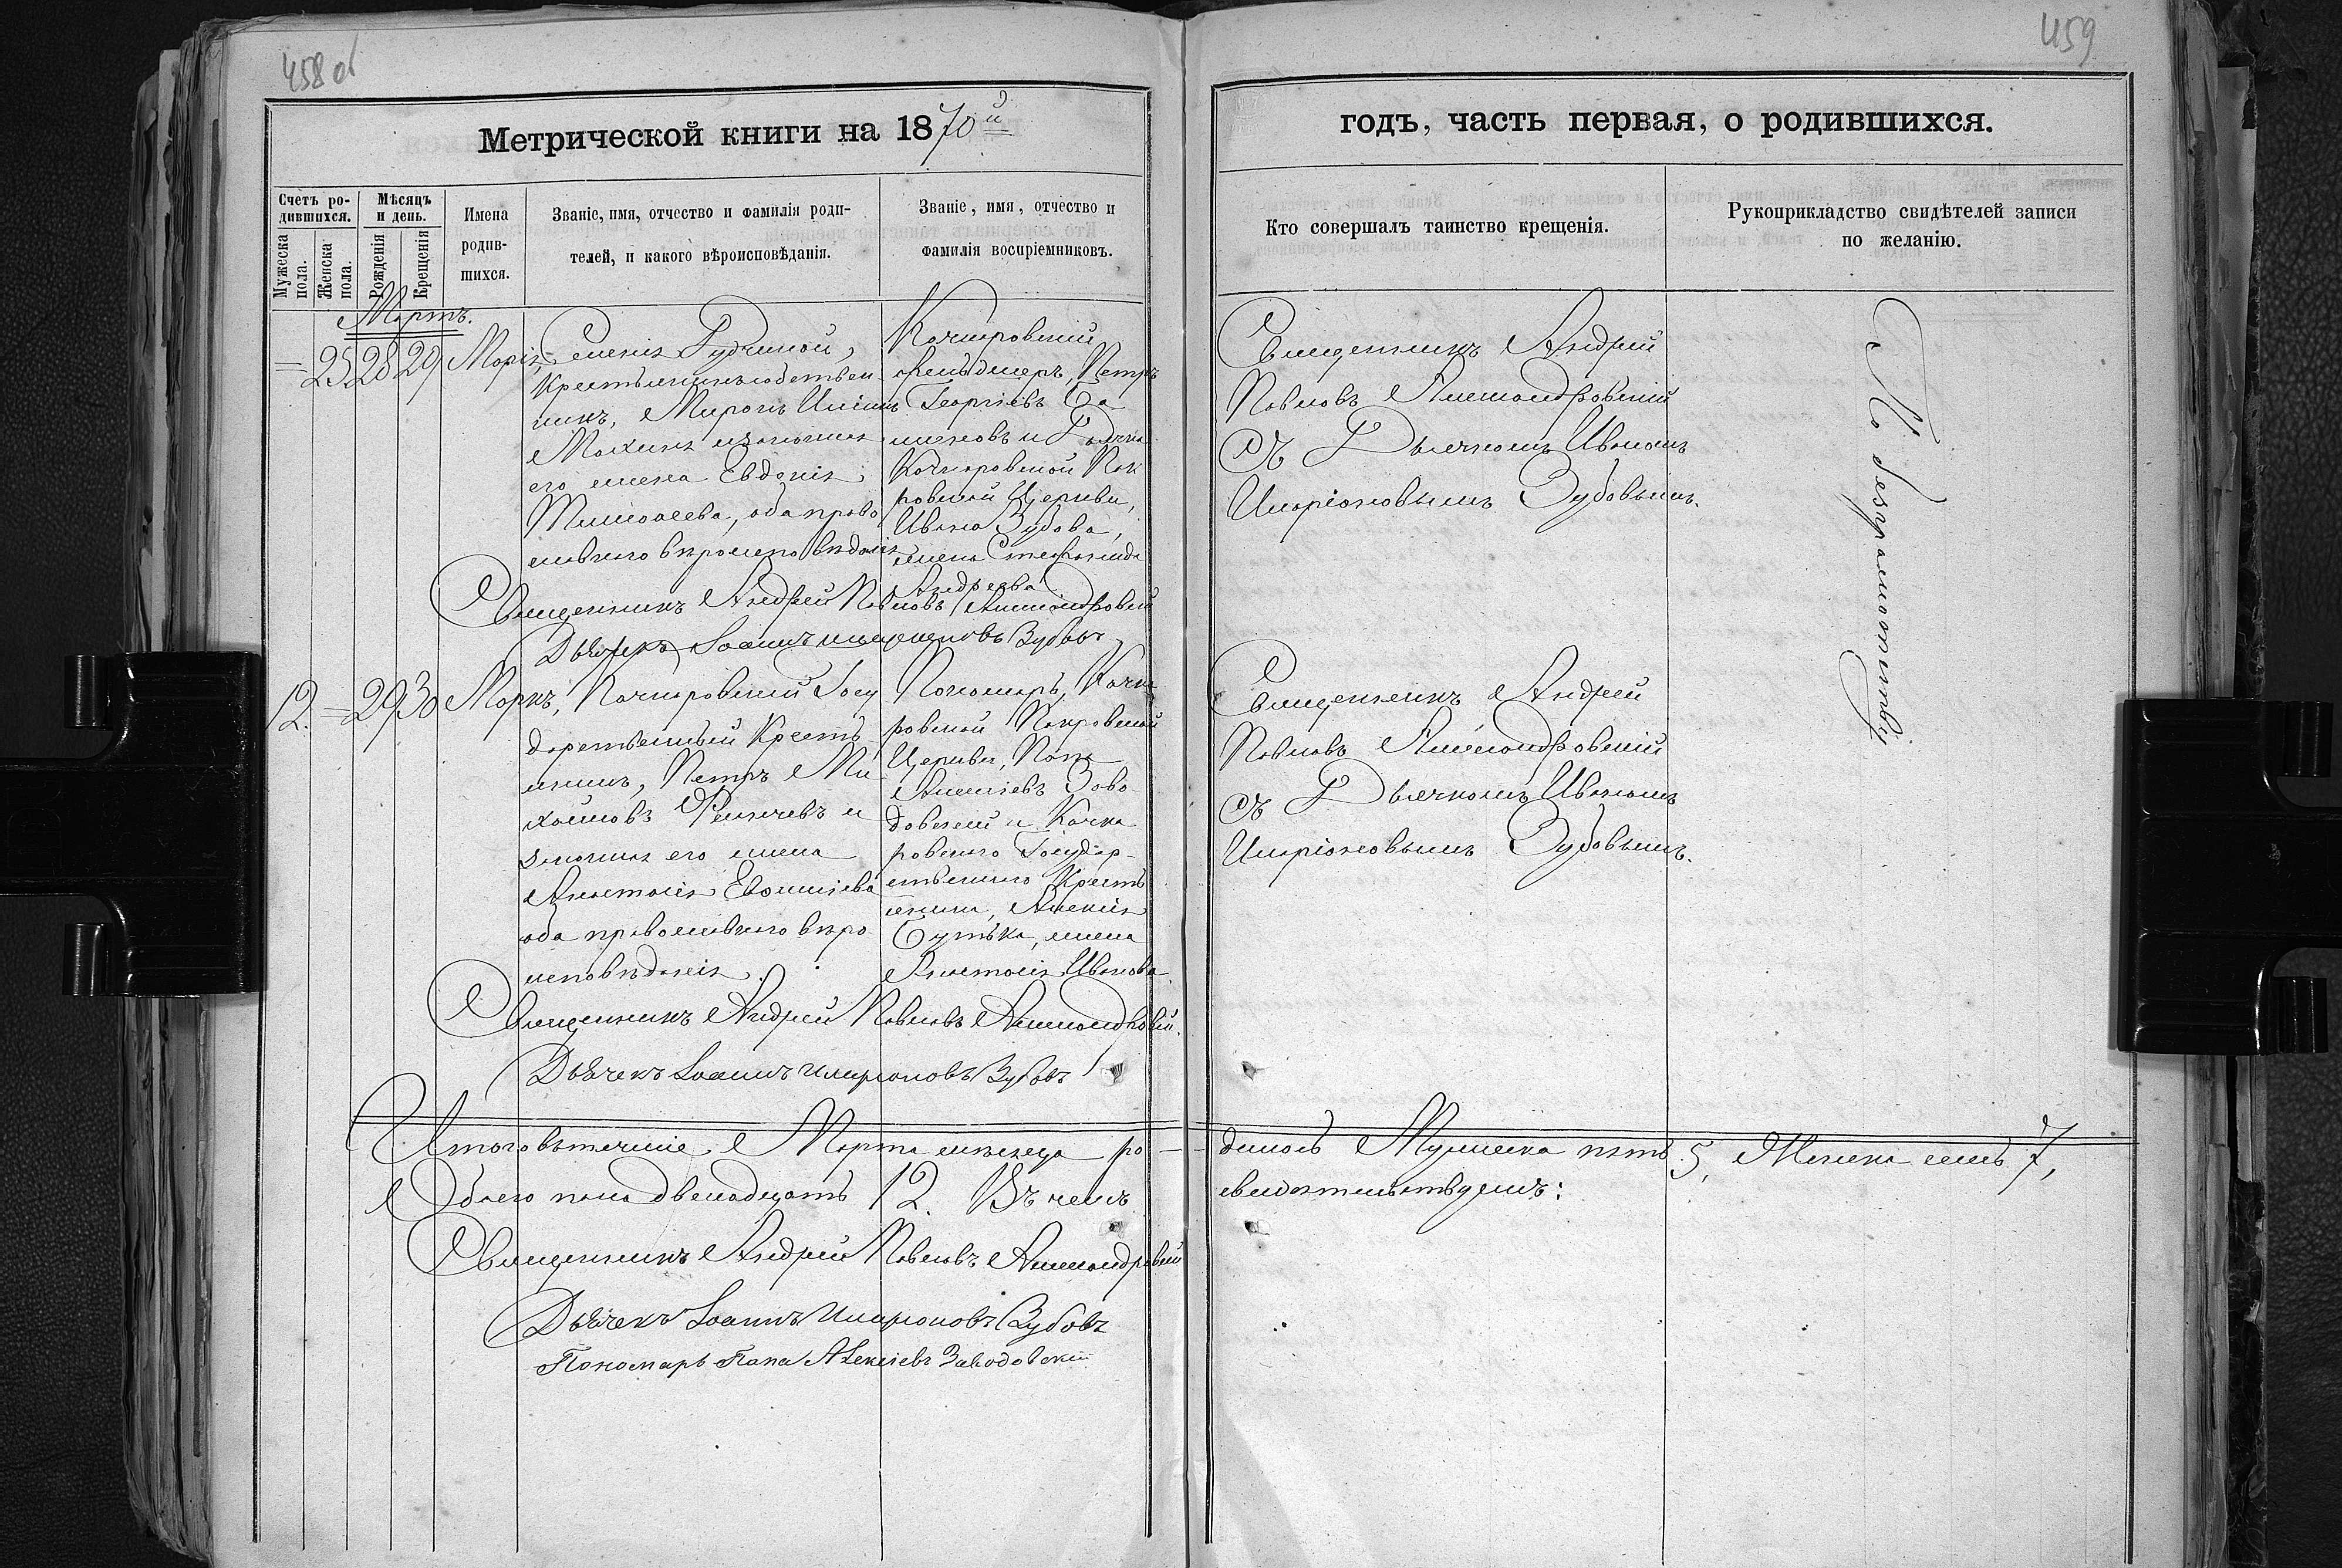 458 об
459
Метрической книги на 1870й
годъ, часть первая, о родившихся.
Счетъ ро-
дившихся.
Мужеска пола.
Женска пола.
Мѣсяцъ
и день.
Рожденія
Крещенія
Имена
родив-
шихся.
Званіе, имя, отчество и фамилія роди-
телей, и какого вѣроисповѣданія.
Званіе, имя, отчество и
фамилія воспріемниковъ.
Кто совершалъ таинство крещенія.
Рукоприкладство свидѣтелей записи
по желанію.
Мартъ.
— 25. 28 29 Марія,
Селенія
Крестьянинъ собствен-
никъ, Миронъ
и законная
его жена Евдокія
Тимофеева, оба право
славнаго вѣроисповѣданія
Качкаровскій
фельдшеръ, Петръ
Георгіевъ
и Дьячка
Качкаровской Пок
ровской Церкви,
Ивана Зубова,
жена Стефанида
Андреева
Священникъ Андрей Павловъ Александровскій
Дьячекъ Іоаннъ Иларіоновъ Зубовъ
Священникъ Андрей
Павловъ Александровскій
съ Дьячкомъ Иваномъ
Иларіоновымъ Зубовымъ.
По безграмотству
12. — 29 30 Маркъ,
Качкаровскій Госу
дарственный Кресть
янинъ, Петръ Ми
хайловъ и
законная его жена
Анастасія Евфиміева
оба православнаго вѣро
исповѣданія.
Пономарь, Качка
ровской Покровской
Церкви, Папа
Алексіевъ Заво
довскій и Качка
ровскаго Государ-
ственнаго Кресть
янина, Алексія
Бутька, жена
Анастасія Иванова
Священникъ Андрей Павловъ Александровскій.
Дьячекъ Іоаннъ Иларіоновъ Зубовъ
Священникъ Андрей
Павловъ Александровскій
съ Дьячкомъ Иваномъ
Иларіоновымъ Зубовымъ.
Итого въ теченіе Марта мѣсяца ро-
дилось Мужеска пять 5, Женска семь 7,
Обоего пола двенадцать 12. Въ чемъ
свидѣтельствуемъ:
Священникъ Андрей Павловъ Александровскій
Дьячекъ Іоаннъ Иларіоновъ Зубовъ
Пономарь Папа Алексіевъ Заводовскій